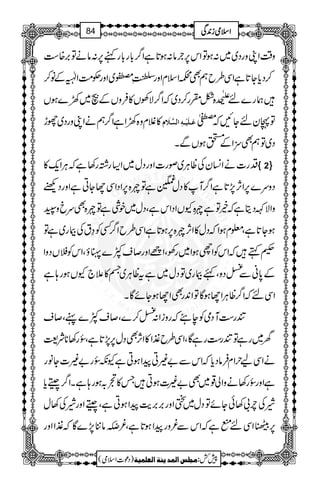 اسلامی زندگی 84
وقت اپنی وردی میں نہ ہو تو اس پر جرمانہ ہوتا ہے اگر بار بار کہنے پر نہ مانے تو برخاست
کردیا جاتا ہے اسی طرح ہم بھی محکمۂ اسلام اور سلطنتِ مصطفوی اور حکومتِ الٰہیہ کے نوکر
ہیں ہمارے لئے علیحدہ شکل مقرر کردی کہ اگر لاکھوں کافروں کے بیچ میں کھڑے ہوں
تو پہچان لئے جائیں کہ مصطفیٰ علیہ السلام کا غلام وہ کھڑا ہے اگر ہم نے اپنی وردی چھوڑ
دی تو ہم بھی سزا کے مستحق ہوں گے۔
{2} قدرت نے انسان کی ظاہری صورت اور دل میں ایسا رشتہ رکھا ہے کہ ہر ایک کا
دوسرے پر اثر پڑتا ہے اگر آپ کا دل غمگین ہے تو چہرے پر اداسی چھا جاتی ہے اور دیکھنے
والا کہہ دیتا ہے کہ خیر تو ہے چہرہ کیوں اداس ہے، دل میں خوشی ہے تو چہرہ بھی سرخ و سپید
ہو جاتا ہے، معلوم ہوا کہ دل کا اثر چہرے پر ہوتا ہے اسی طرح اگر کسی کو دِق کی بیماری ہے تو
حکیم کہتے ہیں کہ اس کو اچھی ہوا میں رکھو، اچھے اور صاف کپڑے پہناؤ، اس کو فلاں دوا
کے پانی سے غسل دو، کہئے بیماری تو دل میں ہے یہ ظاہری جسم کا علاج کیوں ہو رہا ہے
اسی لئے کہ اگر ظاہر اچھا ہوگا تو اندر بھی اچھا ہو جائے گا۔
تندرست آدمی کو چاہئے کہ روزانہ غسل کرے، صاف کپڑے پہنے، صاف
گھر میں رہے تو تندرست رہے گا، اسی طرح غذا کا اثر بھی دل پر پڑتا ہے، سؤر کھانا شریعت
نے اسی لئے حرام فرمادیا کہ اس سے بے غیرتی پیدا ہوتی ہے کیونکہ سؤر بے غیرت جانور
ہے اور سؤر کھانے والی قومیں بھی بے غیرت ہوتی ہیں جس کا تجربہ ہو رہا ہے۔ اگر چیتے یا
شیر کی چربی کھائی جائے تو دل میں سختی اور بربریت پیدا ہوتی ہے، چیتے اور شیر کی کھال
پر بیٹھنا اسی لئے منع ہے کہ اس سے غرور پیدا ہوتا ہے، غرضیکہ ماننا پڑے گا کہ غذا اور
پیش کش: مجلس المدینۃ العلمیۃ (دعوتِ اسلامی)